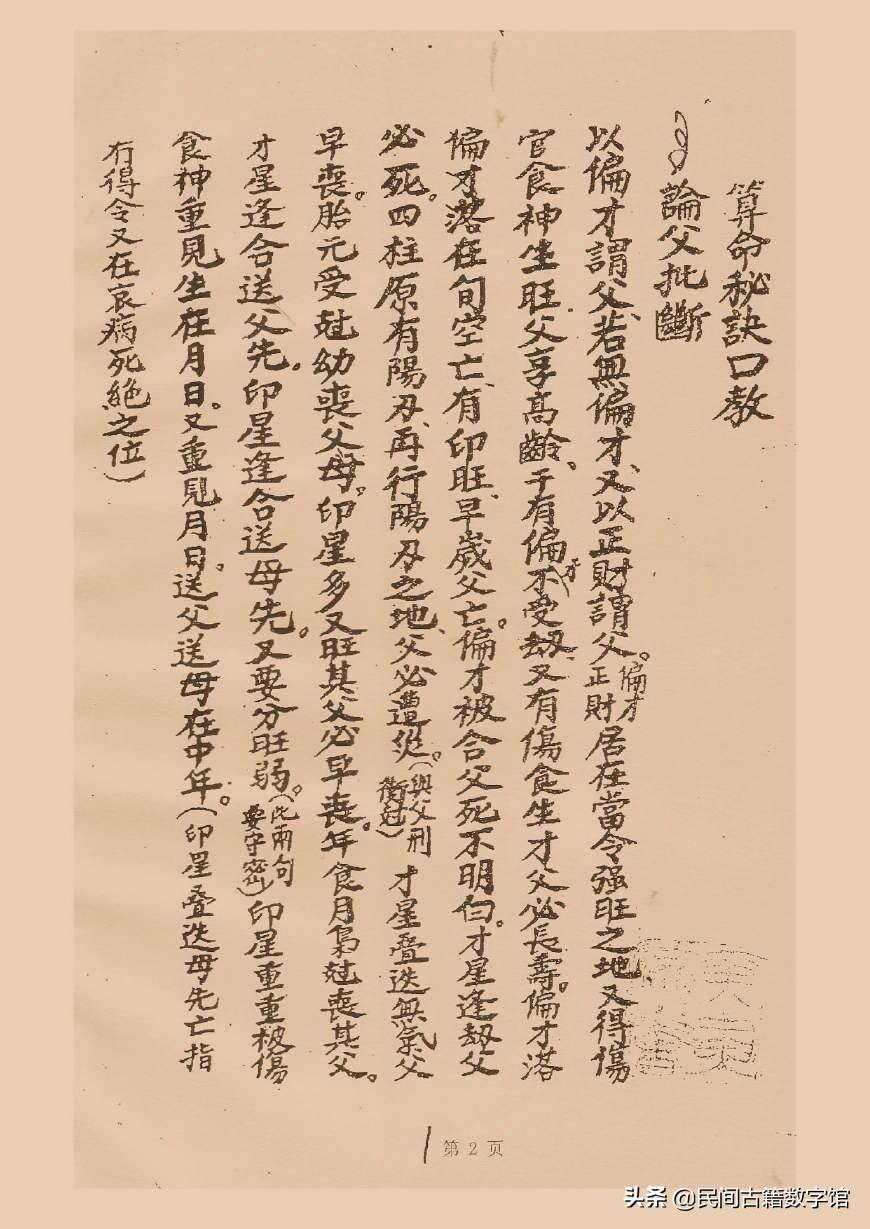 算命秘訣口教
論父批斷
以偏才謂父、若無偏才、又以正財謂父。偏才正財居在當令强旺之地、又得傷
官食神生旺、父享高齡。干有偏才不受刼、又有傷食生才父必長壽。偏才落
偏才落在旬空亡、有印旺、早歲父亡。偏才被合父死不明白。才星逢刼父
必死。四柱原有陽刃、再行陽刃之地、父必遭災。(與父刑衝尅)才星疊迭無氣父
早喪。胎元受尅幼喪父母。印星多又旺其父必早喪。年食月梟尅喪其父。
才星逢合送父先。印星逢合送母先。又要分旺弱。(此兩句要守密)印星重重被傷
食神重見生在月日。又重見月日。送父送母在中年。(印星疊迭母先亡指
冇得令又在衰病死絶之位)
第 2 页
头条 @民间古籍数字馆